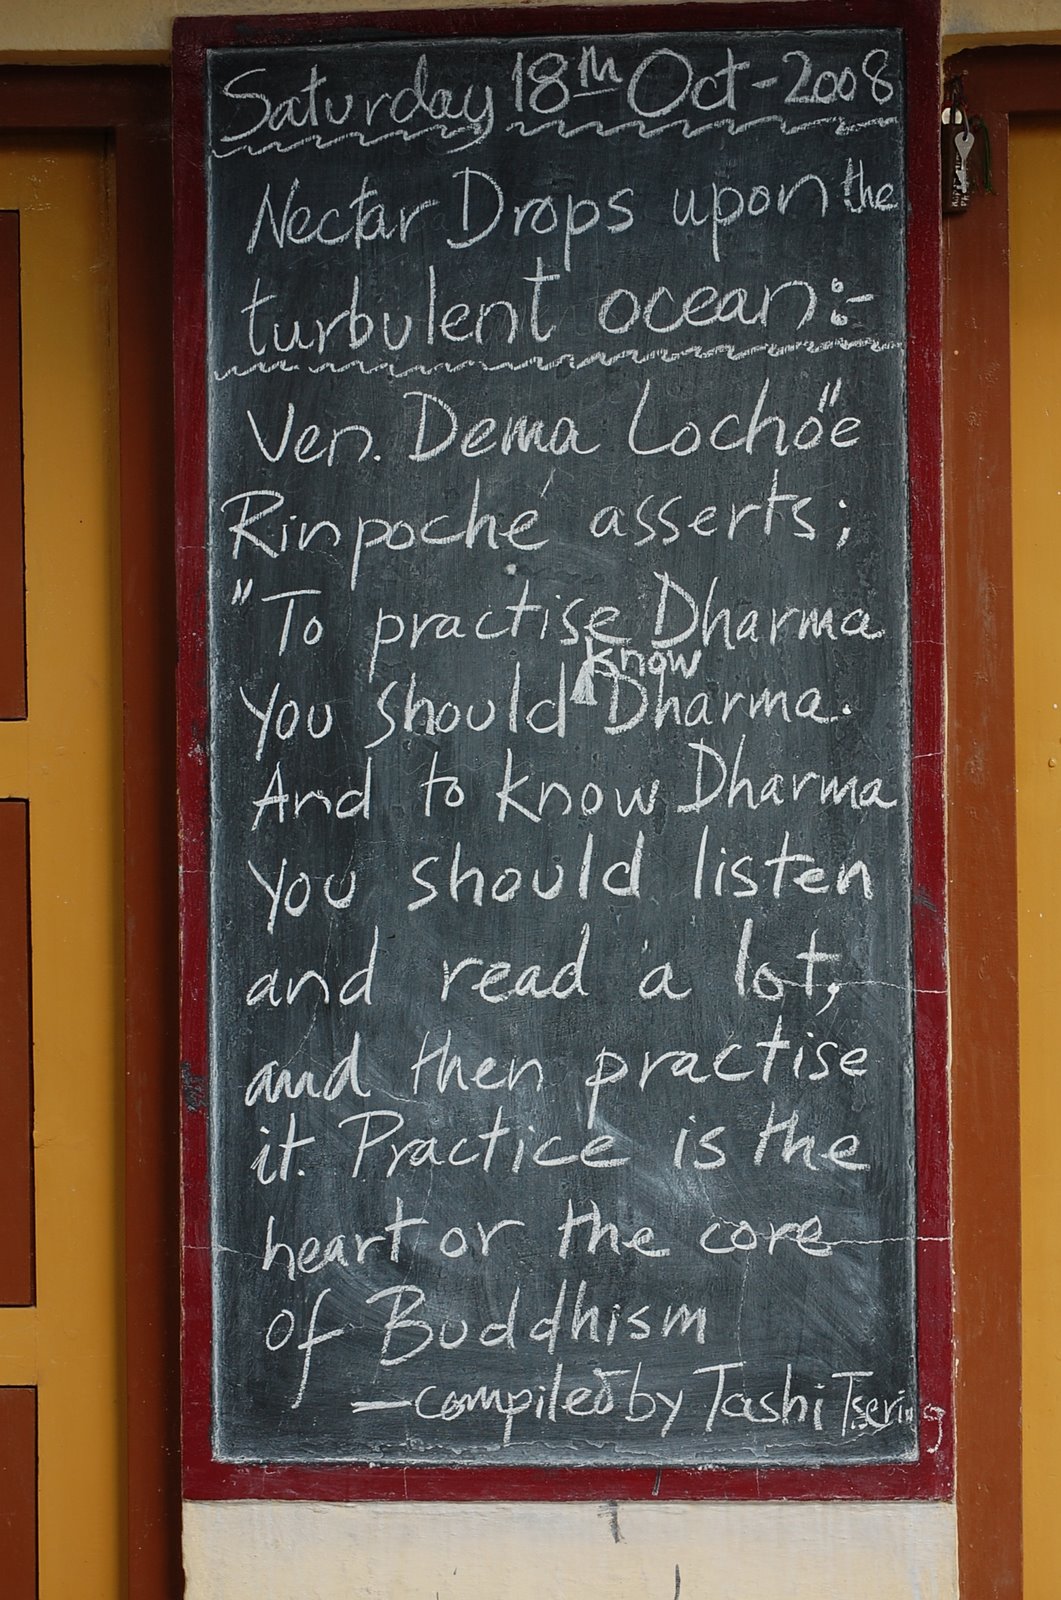 Saturday 18th Oct-2008
Nectar Drops upon the
turbulent ocean:-
Ven. Dema Lochöe
Rinpoche asserts;
"To practise Dharma
You should know Dharma.
And to know Dharma
you should listen
and read a lot,
and then practise
it. Practice is the
heart or the core
of Buddhism
—compiled by Tashi Tsering